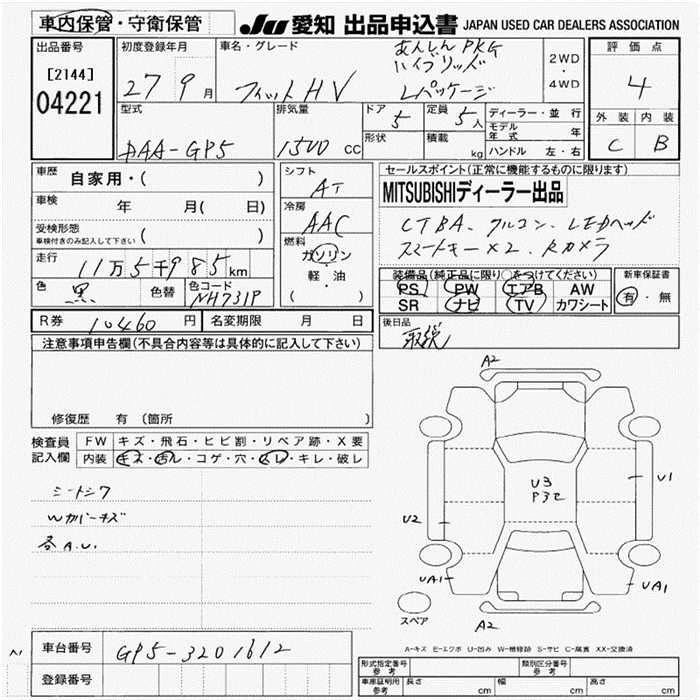 車内保管・守衛保管
JU 愛知 出品申込書 JAPAN USED CAR DEALERS ASSOCIATION
出品番号
[2144]
04221
初度登録年月
27 9 月
車名・グレード
あんしんPKG
フィットHV ハイブリッド
Lパッケージ
2WD
・
4WD
評価点
4
外装 内装
C B
型式
DAA-GP5
排気量
1500 cc
ドア
5
形状
定員
5 人
積載
kg
ディーラー・並行
モデル年式 年
ハンドル 左・右
車歴
自家用・( )
車検
年 月( 日)
受検形態
車検付きのみ記入して下さい ( )
走行
11万5千985km
色
黒
色替
色コード
NH731P
シフト
AT
冷房
AAC
燃料
ガソリン
軽・油
( )
セールスポイント(正常に機能するものに限ります)
MITSUBISHIディーラー出品
CTBA、クルコン、LEDヘッド
スマートキー×2、Rカメラ
装備品(純正品に限り○をつけてください)
PS PW エアB AW
SR ナビ TV カワシート
新車保証書
有・無
R券 10460 円 名変期限 月 日
後日品
取説
注意事項申告欄(不具合内容等は具体的に記入して下さい)
修復歴 有 (箇所
検査員記入欄
FW キズ・飛石・ヒビ割・リペア跡・X要
内装 キズ・汚れ・コゲ・穴・スレ・キレ・破レ
シートシワ
Wカバーキズ
各A.U.
A2
U3
P3こ
U1
U2
UA1
UA1
スペア
A2
A-キズ E-エクボ U-凹み W-補修跡 S-サビ C-腐蝕 XX-交換済
車台番号 GP5-3201612
登録番号
形式指定番号 参考
類別区分番号 参考
車庫証明用 参考 長さ cm 幅 cm 高さ cm